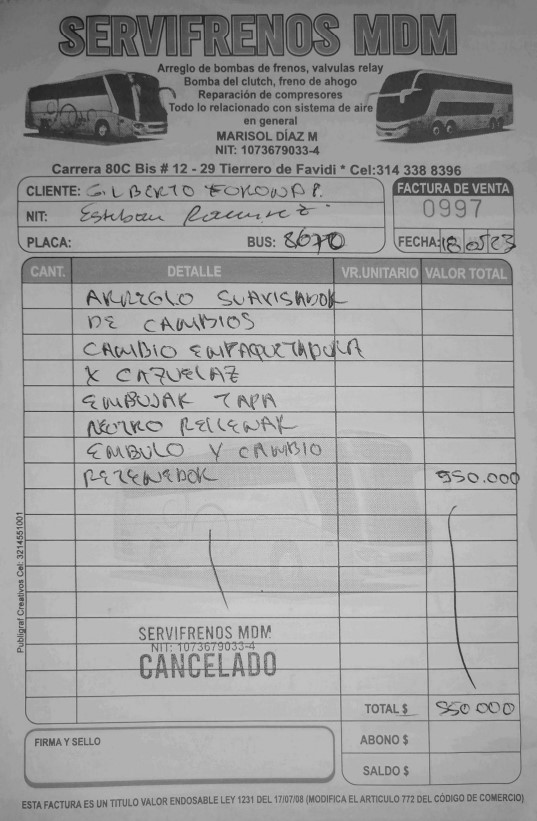 SERVIFRENOS MDM
Arreglo de bombas de frenos, valvulas relay
Bomba del clutch, freno de ahogo
Reparación de compresores
Todo lo relacionado con sistema de aire
en general
MARISOL DÍAZ M
NIT: 1073679033-4
Carrera 80C Bis # 12 - 29 Tierrero de Favidi * Cel:314 338 8396
CLIENTE: GILBERTO FORONDA P.
FACTURA DE VENTA
0997
NIT: Esteban Ramirez
PLACA: BUS: 8670
FECHA: 18 05 23
CANT. DETALLE VR.UNITARIO VALOR TOTAL
ARREGLO SUAVISADOR
DE CAMBIOS
CAMBIO EMPAQUETADURA
X CAZUELAZ
EMBUJAR TAPA
NEGRO RELLENAR
EMBULO Y CAMBIO
RETENEDOR 550.000
SERVIFRENOS MDM
NIT: 1073679033-4
CANCELADO
TOTAL $ 550.000
FIRMA Y SELLO
ABONO $
SALDO $
Publigraf Creativos Cel: 3214551001
ESTA FACTURA ES UN TITULO VALOR ENDOSABLE LEY 1231 DEL 17/07/08 (MODIFICA EL ARTICULO 772 DEL CÓDIGO DE COMERCIO)